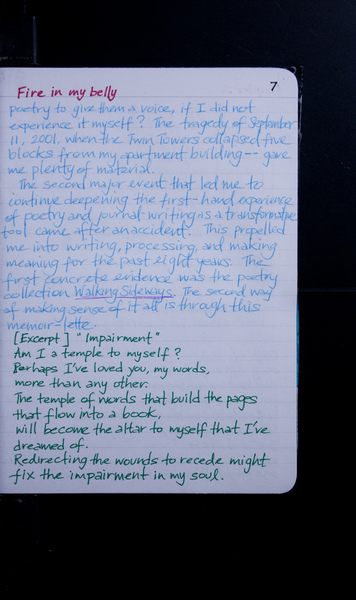 7
Fire in my belly
poetry to give them a voice, if I did not
experience it myself? The tragedy of September
11, 2001, when the Twin Towers collapsed five
blocks from my apartment building -- gave
me plenty of material.
The second major event that led me to
continue deepening the first-hand experience
of poetry and journal-writing as a transformative
tool came after an accident. This propelled
me into writing, processing, and making
meaning for the past eight years. The
first concrete evidence was the poetry
collection Walking Sideways. The second way
of making sense of it all is through this
memoir-lette.
[Excerpt] "Impairment"
Am I a temple to myself?
Perhaps I've loved you, my words,
more than any other.
The temple of words that build the pages
that flow into a book,
will become the altar to myself that I've
dreamed of.
Redirecting the wounds to recede might
fix the impairment in my soul.